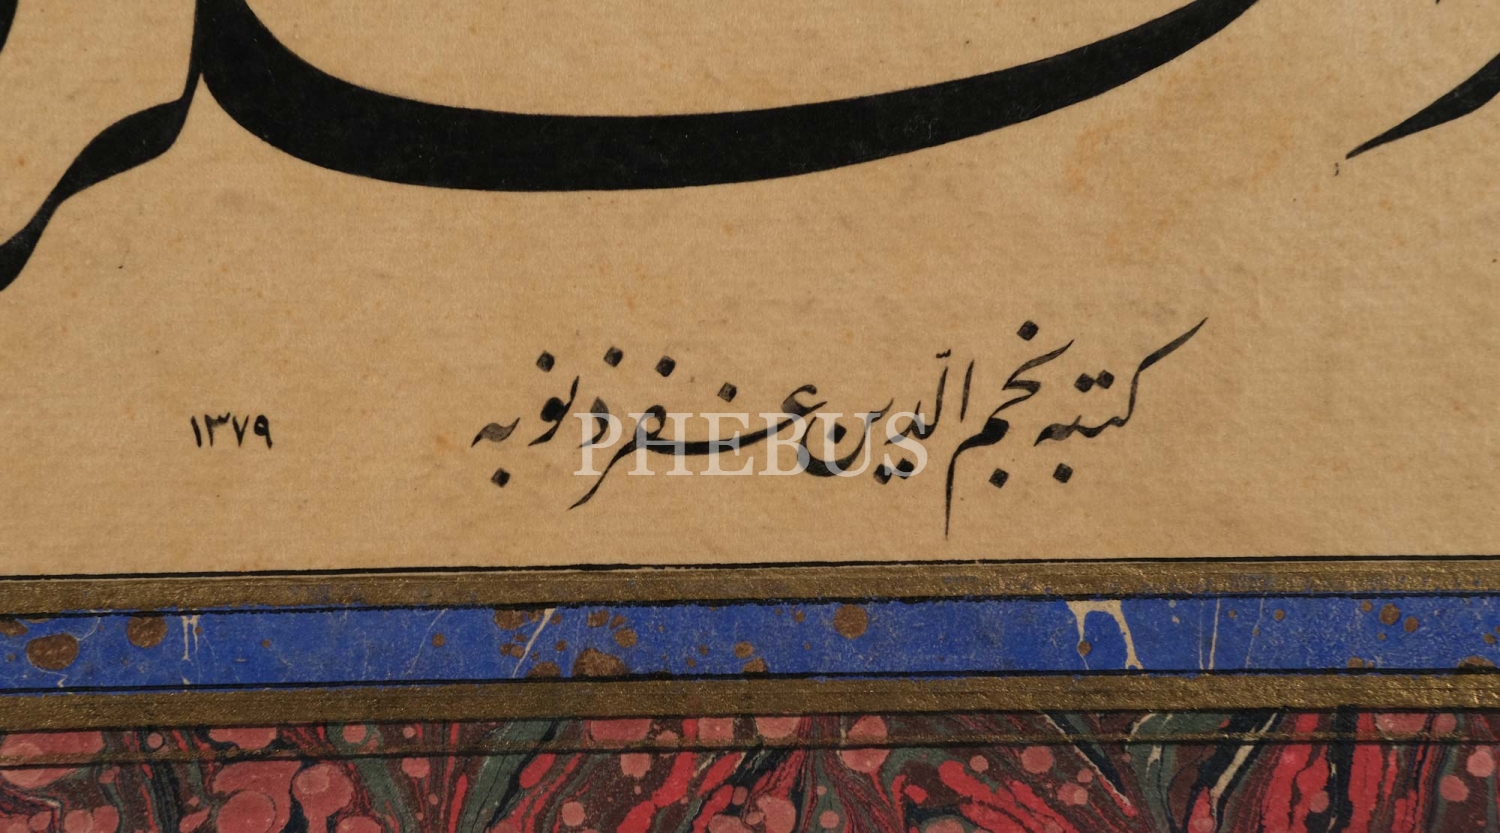 كتبه نجم الدّين غفر ذنوبه
١٣٧٩
PHEBUS